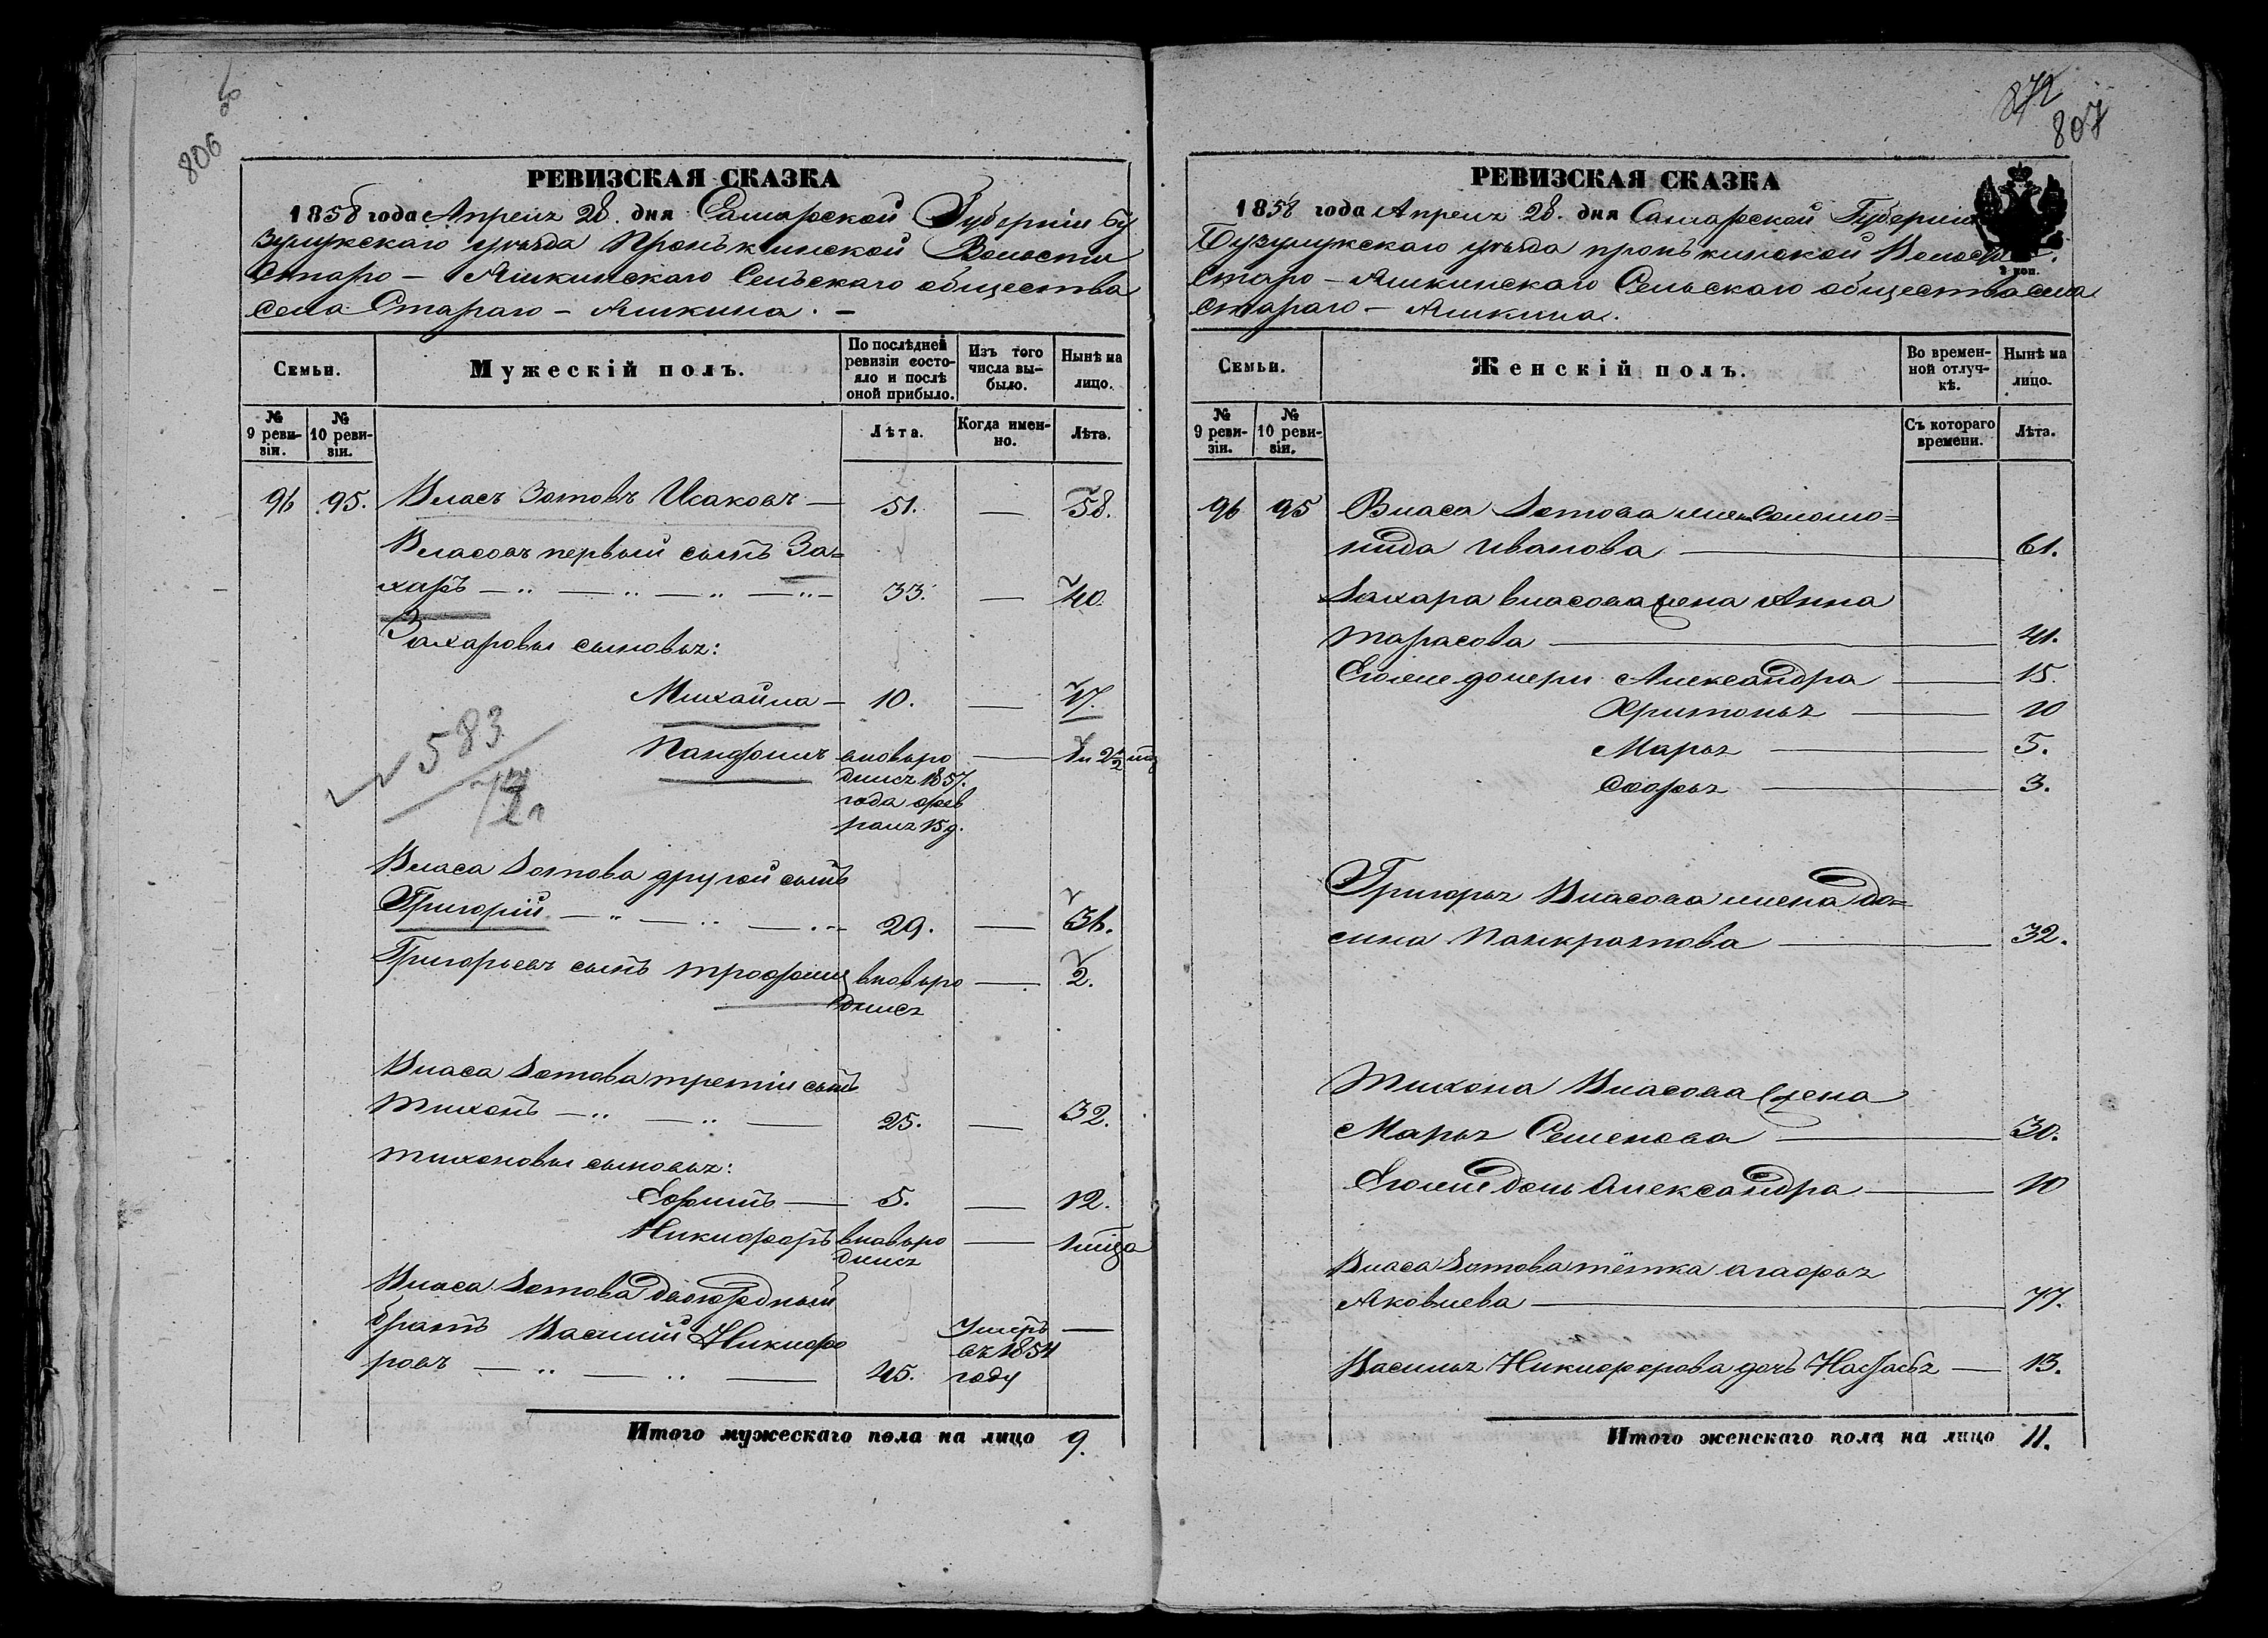 806
РЕВИЗСКАЯ СКАЗКА
1858 года Апреля 28. дня Самарской Губернiи Бу
зулукскаго уѣзда Пронькинской Волости
Старо - Яшкинскаго Сельскаго общества
села Стараго - Яшкина. -
Семьи.
Мужескій полъ.
По послѣдней ревизіи состояло и послѣ оной прибыло.
Изъ того числа выбыло.
Нынѣ на лицо.
№ 9 ревизіи.
№ 10 ревизіи.
Лѣта.
Когда именно.
Лѣта.
96 95. Власъ Зотовъ Исаковъ — 51. — 58.
Власовъ первый сынъ За=
харъ — 33. — 40.
Захаровы сыновья:
Михайла — 10. — 17.
583
Панфилъ вновь ро — 1 и 2½ мц
дился 1857.
года фев
раля 15 д.
Власа Зотова другой сынъ
Григорій — 29. — 36.
Григорьевъ сынъ Трофимъ вновь ро — 2.
дился
Власа Зотова третiй сынъ
Тихонъ — 25. — 32.
Тихоновы сыновья:
Ефимъ — 5. — 12.
Никифоръ вновь ро — 1 мѣца
дился
Власа Зотова двоюродный
братъ Василий Никифо Умеръ —
ровъ — 45. въ 1854
году
Итого мужескаго пола на лицо 9.
872
807
РЕВИЗСКАЯ СКАЗКА
1858 года Апреля 28. дня Самарской Губернiи
Бузулукскаго уѣзда пронькинской Волости.
Старо - Яшкинскаго Сельскаго общества села
Стараго - Яшкина.
Семьи.
Женскій полъ.
Во временной отлучкѣ.
Нынѣ на лицо.
№ 9 ревизіи.
№ 10 ревизіи.
Съ котораго времени.
Лѣта.
96 95 Власа Зотова жена Соломо=
нида Иванова — 61.
Захара Власова жена Анна
Тарасова — 41.
Его же дочери Александра — 15.
Хритонья — 10
Марья — 5.
Дарья — 3.
Григорья Власова жена До=
сина Панкратова — 32.
Тихона Власова жена
Марья Семенова — 30.
Его же дочь Александра — 10
Власа Зотова тётка Агафья
Яковлева — 77.
Василья Никифорова дочь Настасья — 13.
Итого женскаго пола на лицо 11.